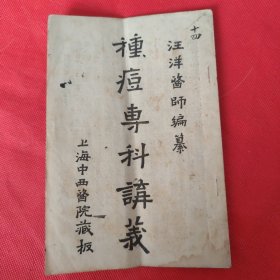 十四
汪洋醫師編纂
種痘專科講義
上海中西醫院藏板